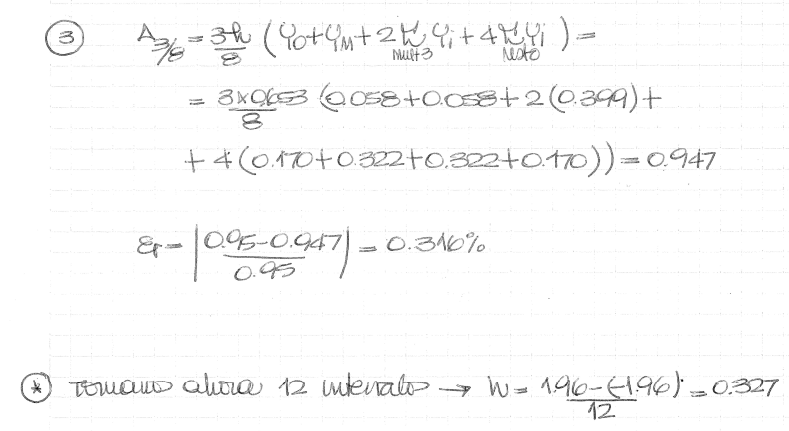 ③ A3/8 = 3h/8 (Y0+YM+2 Σ Yi + 4 Σ Yi) =
mult3 resto
= 3×0.653/8 (0.058+0.058+2(0.399)+
+4(0.170+0.322+0.322+0.170)) = 0.947
Er = |0.95-0.947/0.95| = 0.316%
(*) tomamos ahora 12 intervalos → h = 1.96-(-1.96)/12 = 0.327